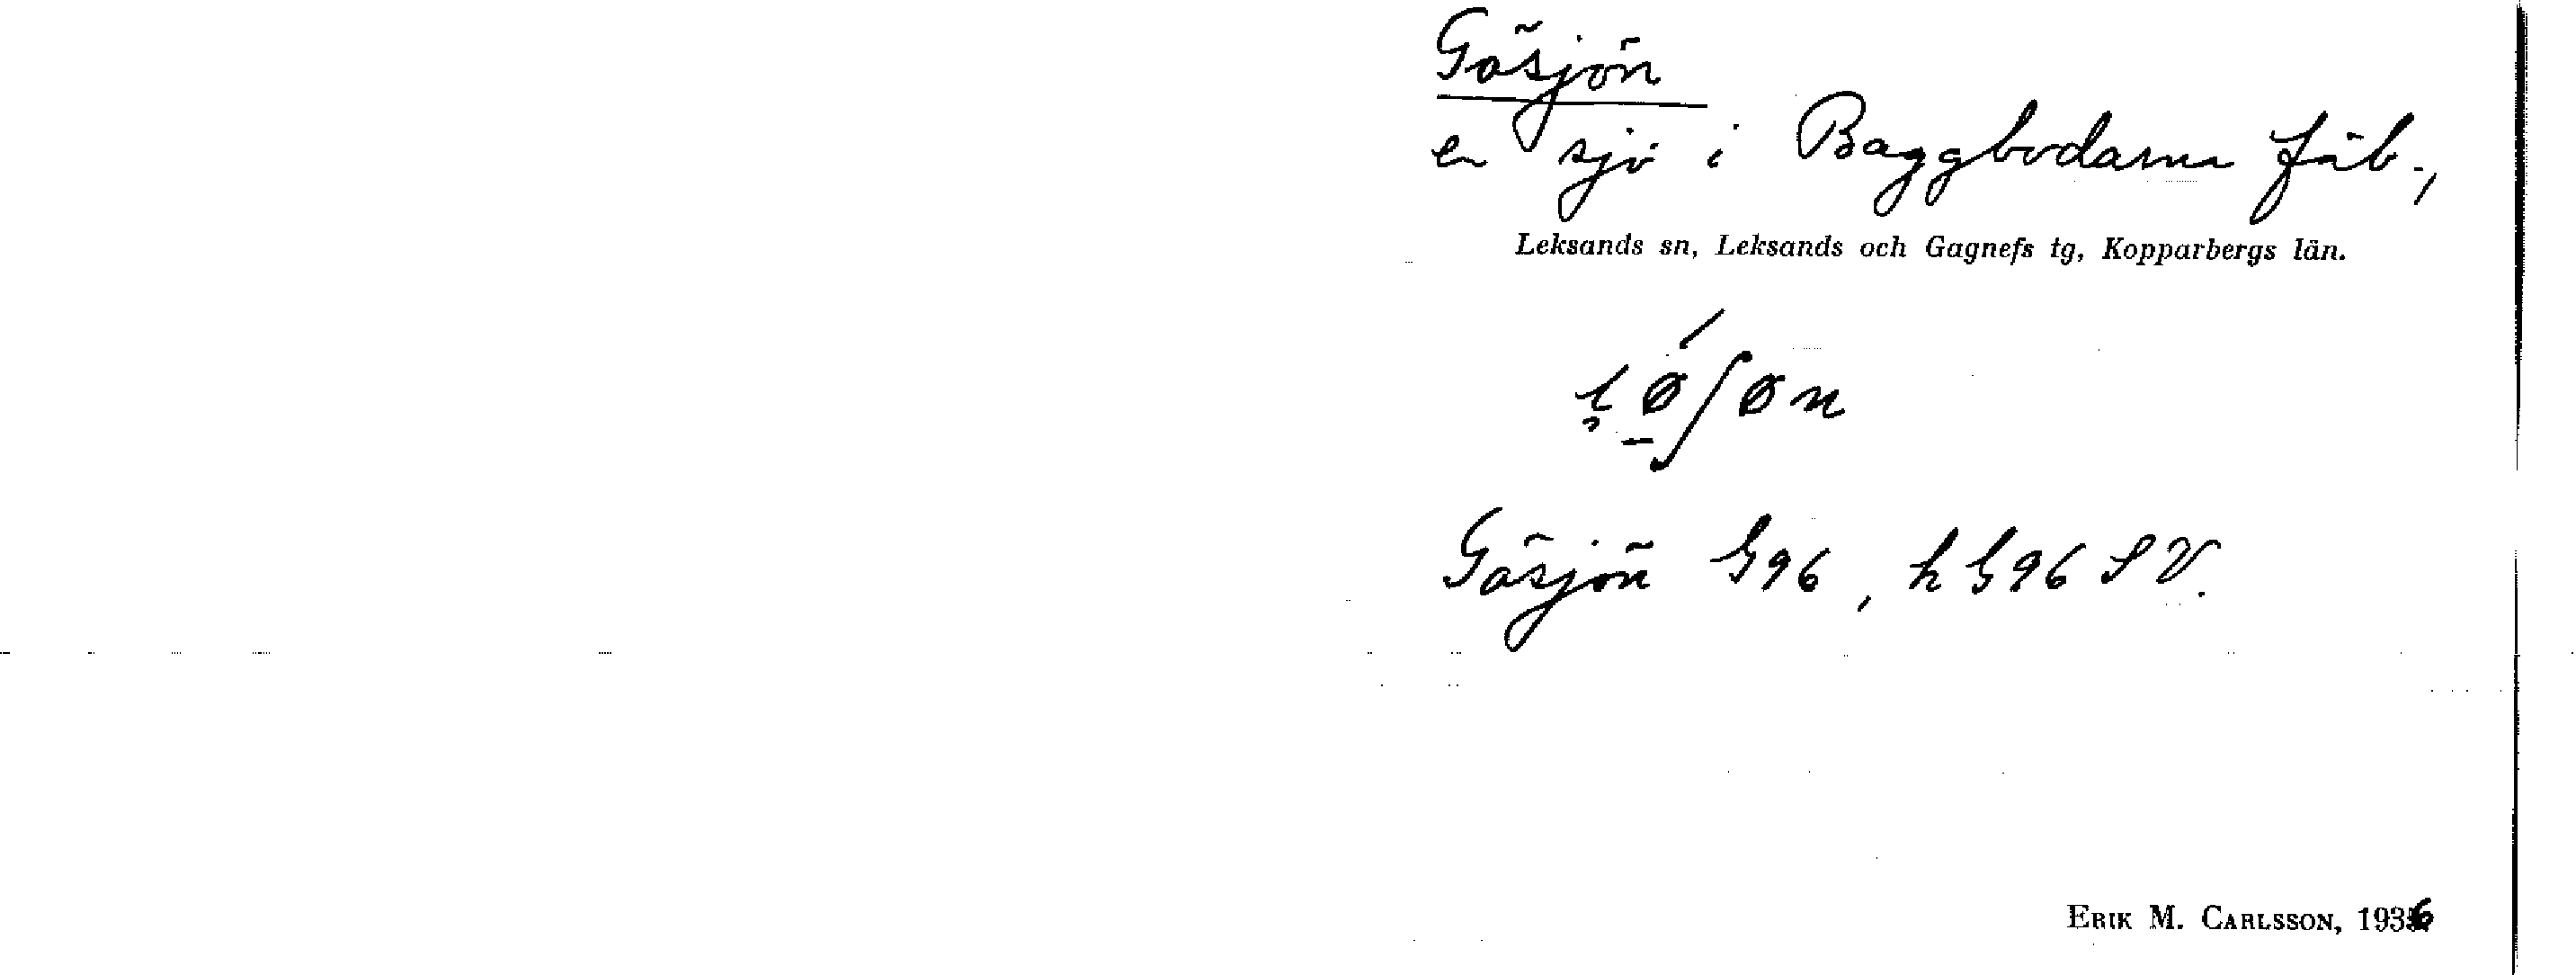 Gösjön
en sjö i Baggbodarna fäb.,
Leksands sn, Leksands och Gagnefs tg, Kopparbergs län.
Gösjön G96, h G96 SV.
ERIK M. CARLSSON, 1936